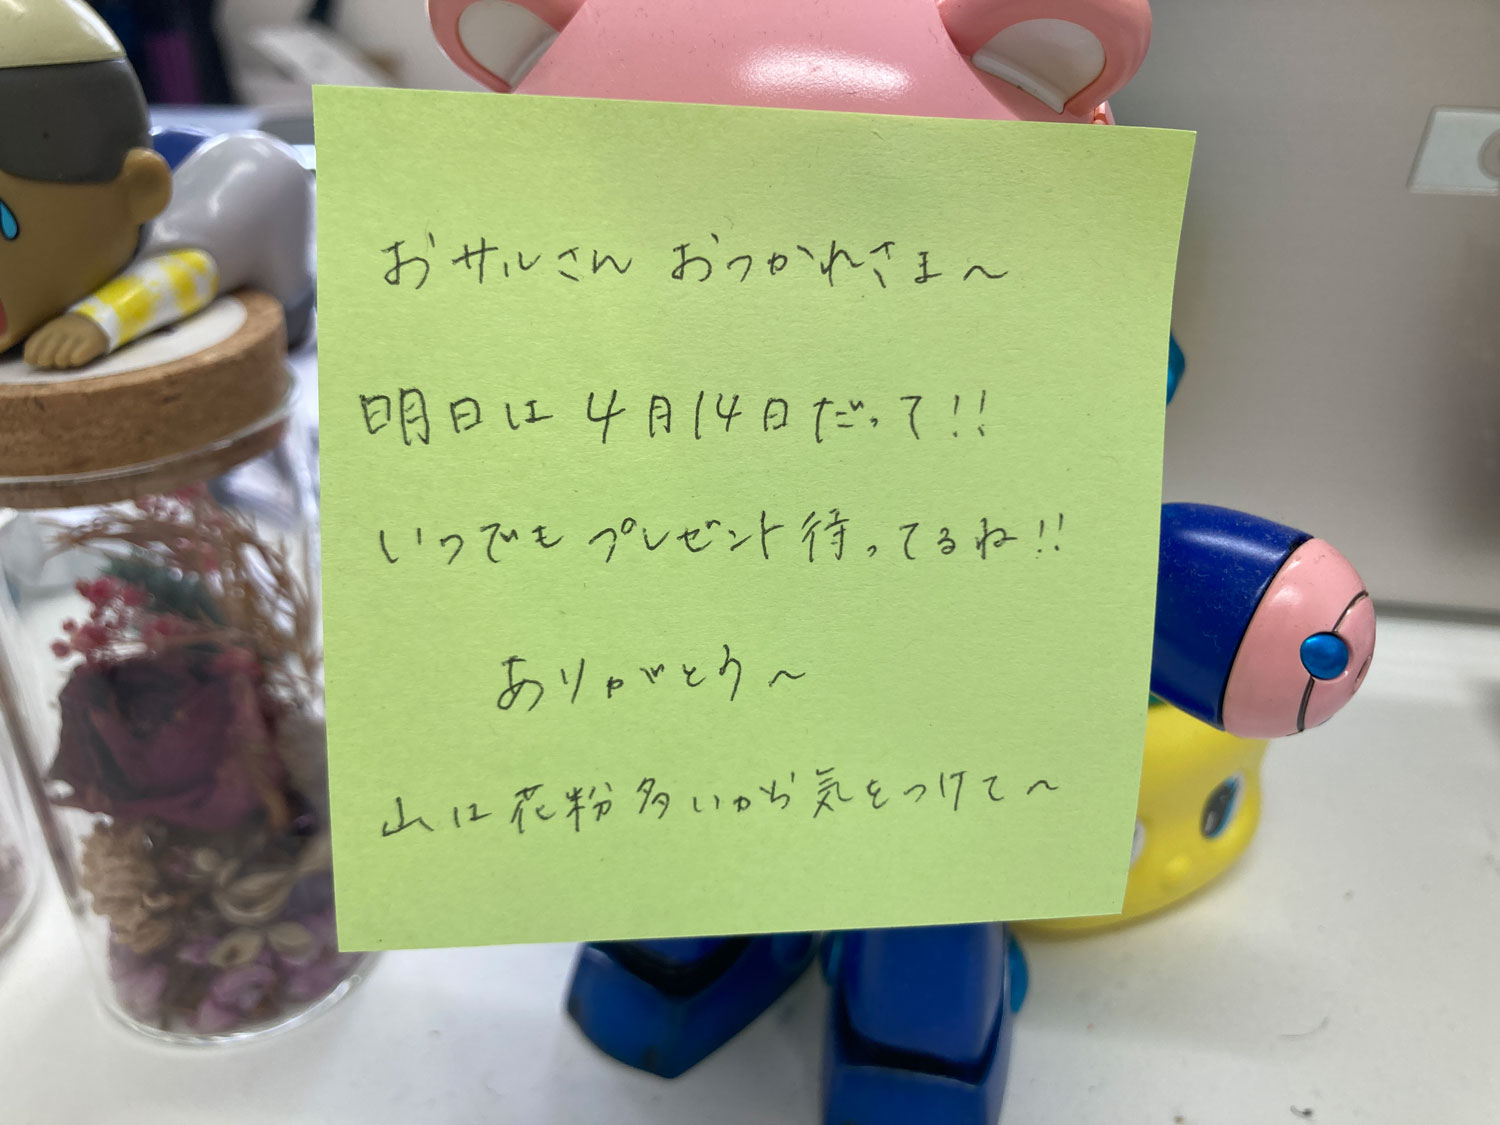 おサルさん おつかれさま〜
明日は4月14日だって!!
いつでもプレゼント待ってるね!!
ありがとう〜
山は花粉多いから気をつけて〜